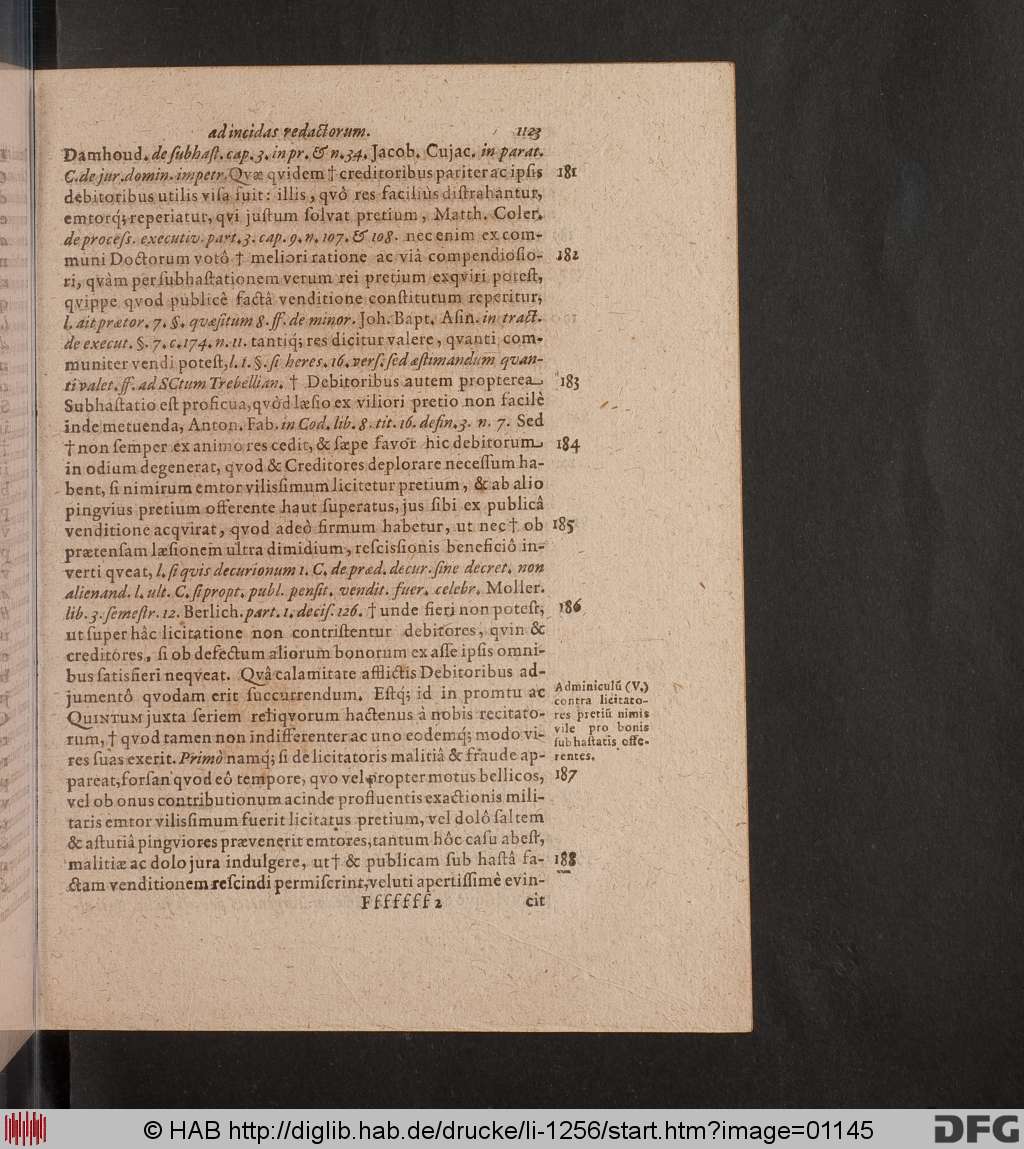 ad incidas redactorum. 1123
Damhoud. de subhast. cap. 3. in pr. & n. 34. Jacob. Cujac. in parat.
C. de jur. domin. impetr. Qvæ qvidem † creditoribus pariter ac ipsis 181
debitoribus utilis visa fuit: illis, qvò res faciliùs distrahantur,
emtorq́; reperiatur, qvi justum solvat pretium, Matth. Coler.
de process. executiv. part. 3. cap. 9. n. 107. & 108. nec enim ex com-
muni Doctorum votô † meliori ratione ac viâ compendiosio- 182
ri, qvàm per subhastationem verum rei pretium exqviri potest,
qvippe qvod publicè factâ venditione constitutum reperitur,
l. ait prætor. 7. §. qvæsitum 8. ff. de minor. Joh. Bapt. Asin. in tract.
de execut. §. 7. c. 174. n. 11. tantiq́; res dicitur valere, qvanti com-
muniter vendi potest, l. 1. §. si heres. 16. vers. sed æstimandum qvan-
ti valet. ff. ad SCtum Trebellian. † Debitoribus autem propterea 183
Subhastatio est proficua, qvòd læsio ex viliori pretio non facilè
inde metuenda, Anton. Fab. in Cod. lib. 8. tit. 16. defin. 3. n. 7. Sed
† non semper ex animo res cedit, & sæpe favor hic debitorum 184
in odium degenerat, qvod & Creditores deplorare necessum ha-
bent, si nimirum emtor vilissimum licitetur pretium, & ab alio
pingvius pretium offerente haut superatus, jus sibi ex publicâ
venditione acqvirat, qvod adeò firmum habetur, ut nec † ob 185
prætensam læsionem ultra dimidium, rescissionis beneficiô in-
verti qveat, l. si qvis decurionum 1. C. de præd. decur. sine decret. non
alienand. l. ult. C. si propt. publ. pensit. vendit. fuer. celebr. Moller.
lib. 3. semestr. 12. Berlich. part. 1. decis. 126. † unde fieri non potest, 186
ut super hâc licitatione non contristentur debitores, qvin &
creditores, si ob defectum aliorum bonorum ex asse ipsis omni-
bus satisfieri neqveat. Qvâ calamitate afflictis Debitoribus ad-
jumentô qvodam erit succurrendum. Estq́; id in promtu ac
QUINTUM juxta seriem reliqvorum hactenus à nobis recitato-
rum, † qvod tamen non indifferenter ac uno eodemq́; modo vi-
res suas exerit. Primò namq́; si de licitatoris malitiâ & fraude ap-
Adminiculũ (V.)
contra licitato-
res pretiũ nimis
vile pro bonis
subhastatis offe-
rentes.
pareat, forsan qvod eô tempore, qvo vel propter motus bellicos, 187
vel ob onus contributionum ac inde profluentis exactionis mili-
taris emtor vilissimum fuerit licitatus pretium, vel dolô saltem
& astutiâ pingviores prævenerit emtores, tantum hôc casu abest,
malitiæ ac dolo jura indulgere, ut † & publicam sub hastâ fa- 188
ctam venditionem rescindi permiserint, veluti apertissimè evin-
Fffffff 2 cit
© HAB http://diglib.hab.de/drucke/li-1256/start.htm?image=01145
DFG